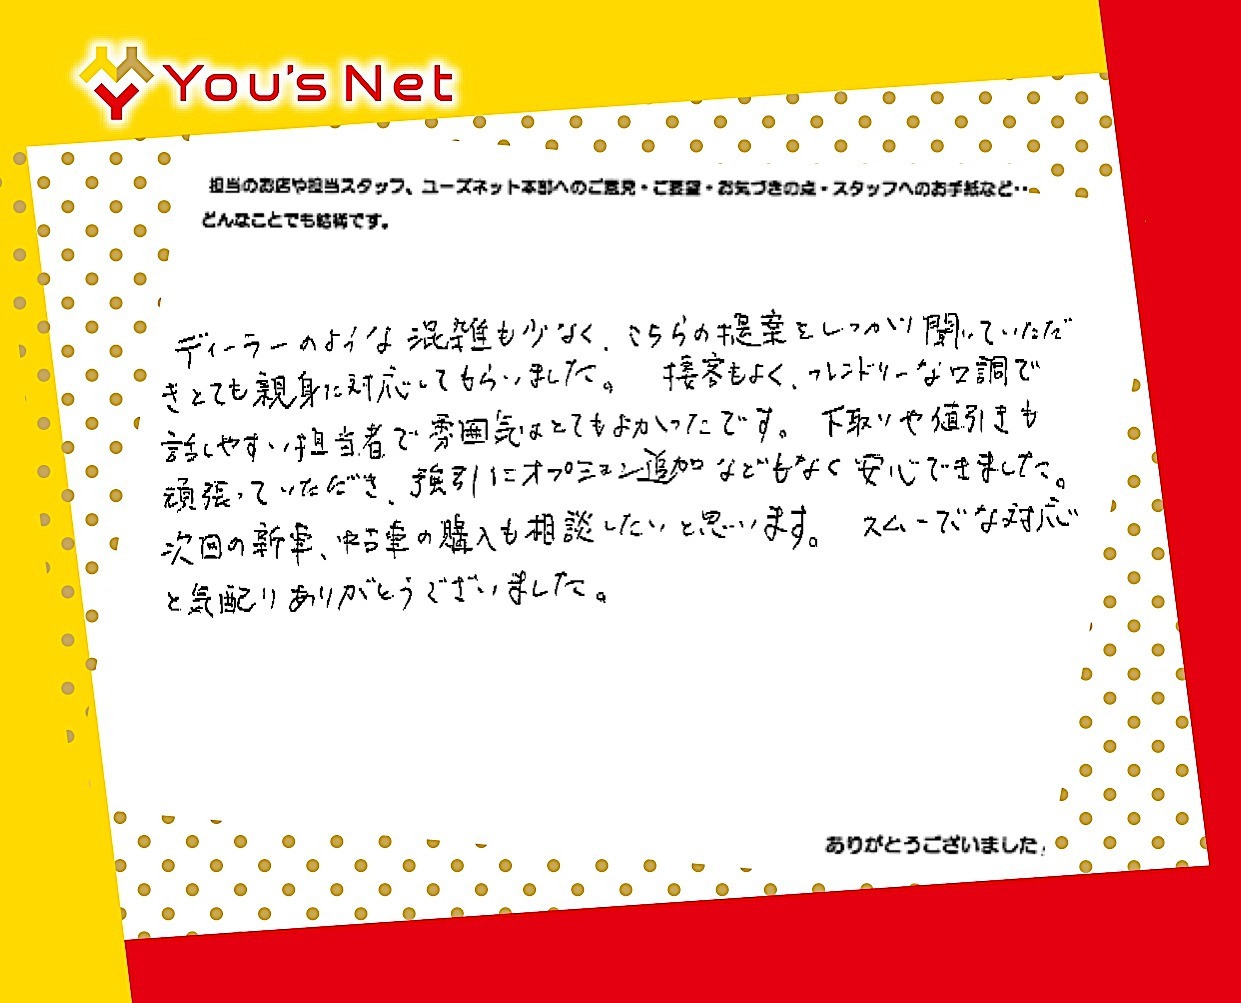 You's Net
担当のお店や担当スタッフ、ユーズネット本部へのご意見・ご要望・お気づきの点・スタッフへのお手紙など‥
どんなことでも結構です。
ディーラーのような混雑も少なく、こちらの提案をしっかり聞いていただ
きとても親身に対応してもらいました。 接客もよく、フレンドリーな口調で
話しやすい担当者で雰囲気はとてもよかったです。 下取りや値引きも
頑張っていただき、強引にオプション追加などもなく安心できました。
次回の新車、中古車の購入も相談したいと思います。 スムーズな対応
と気配りありがとうございました。
ありがとうございました